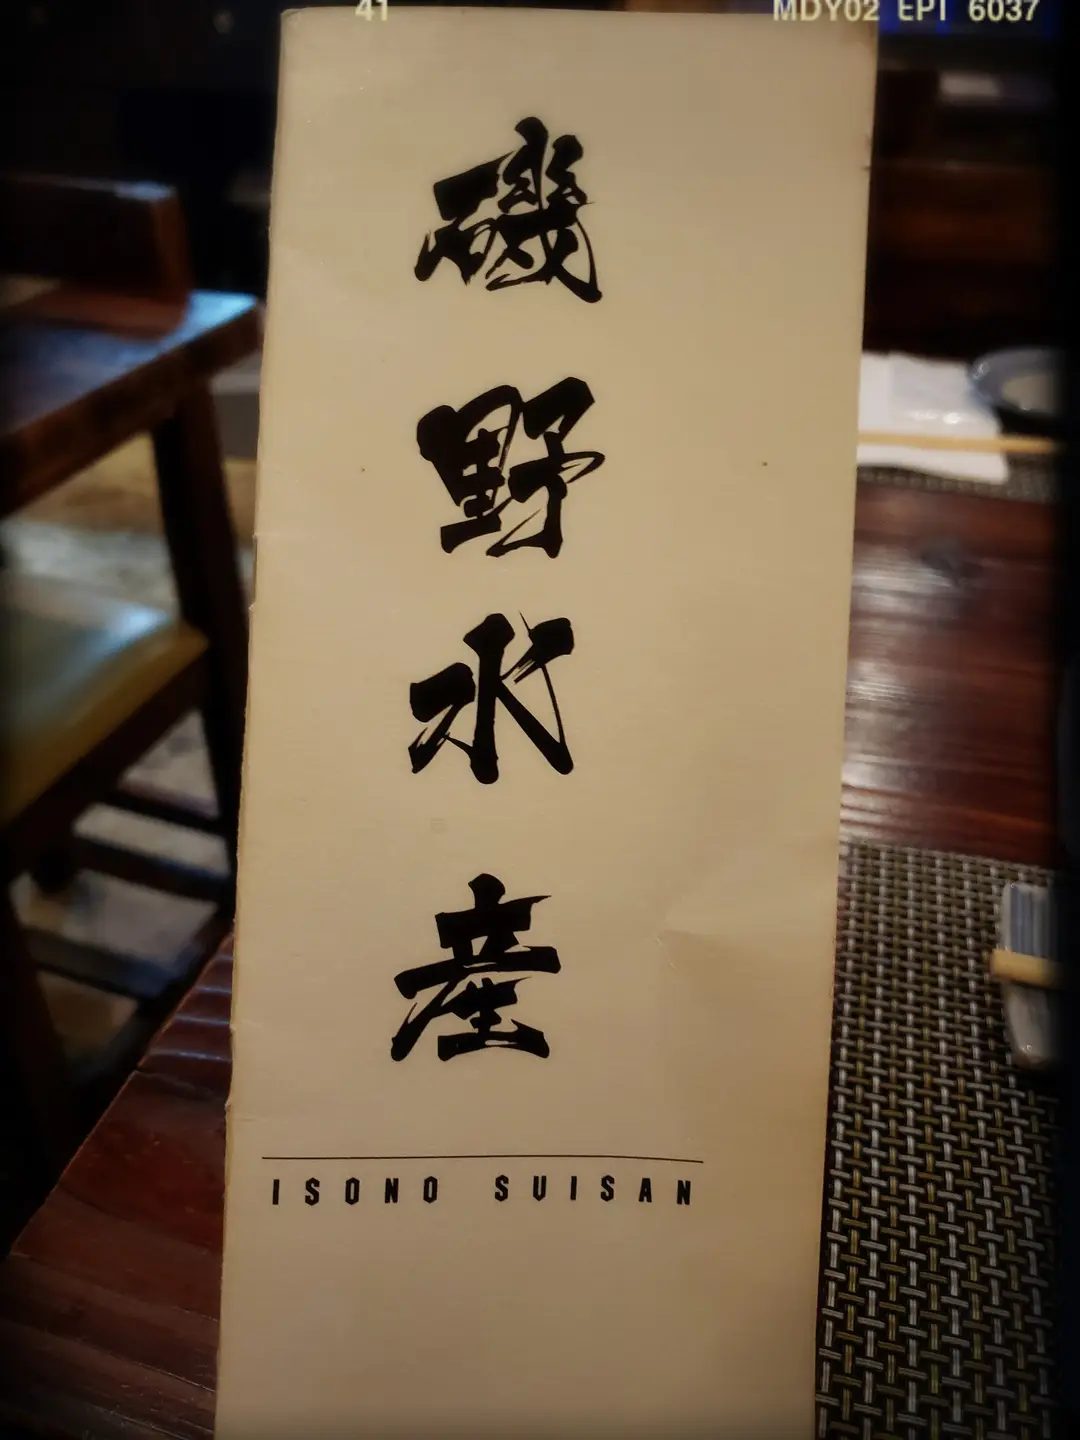 41
MDY02 EPI 6037
磯野水産
ISONO SUISAN